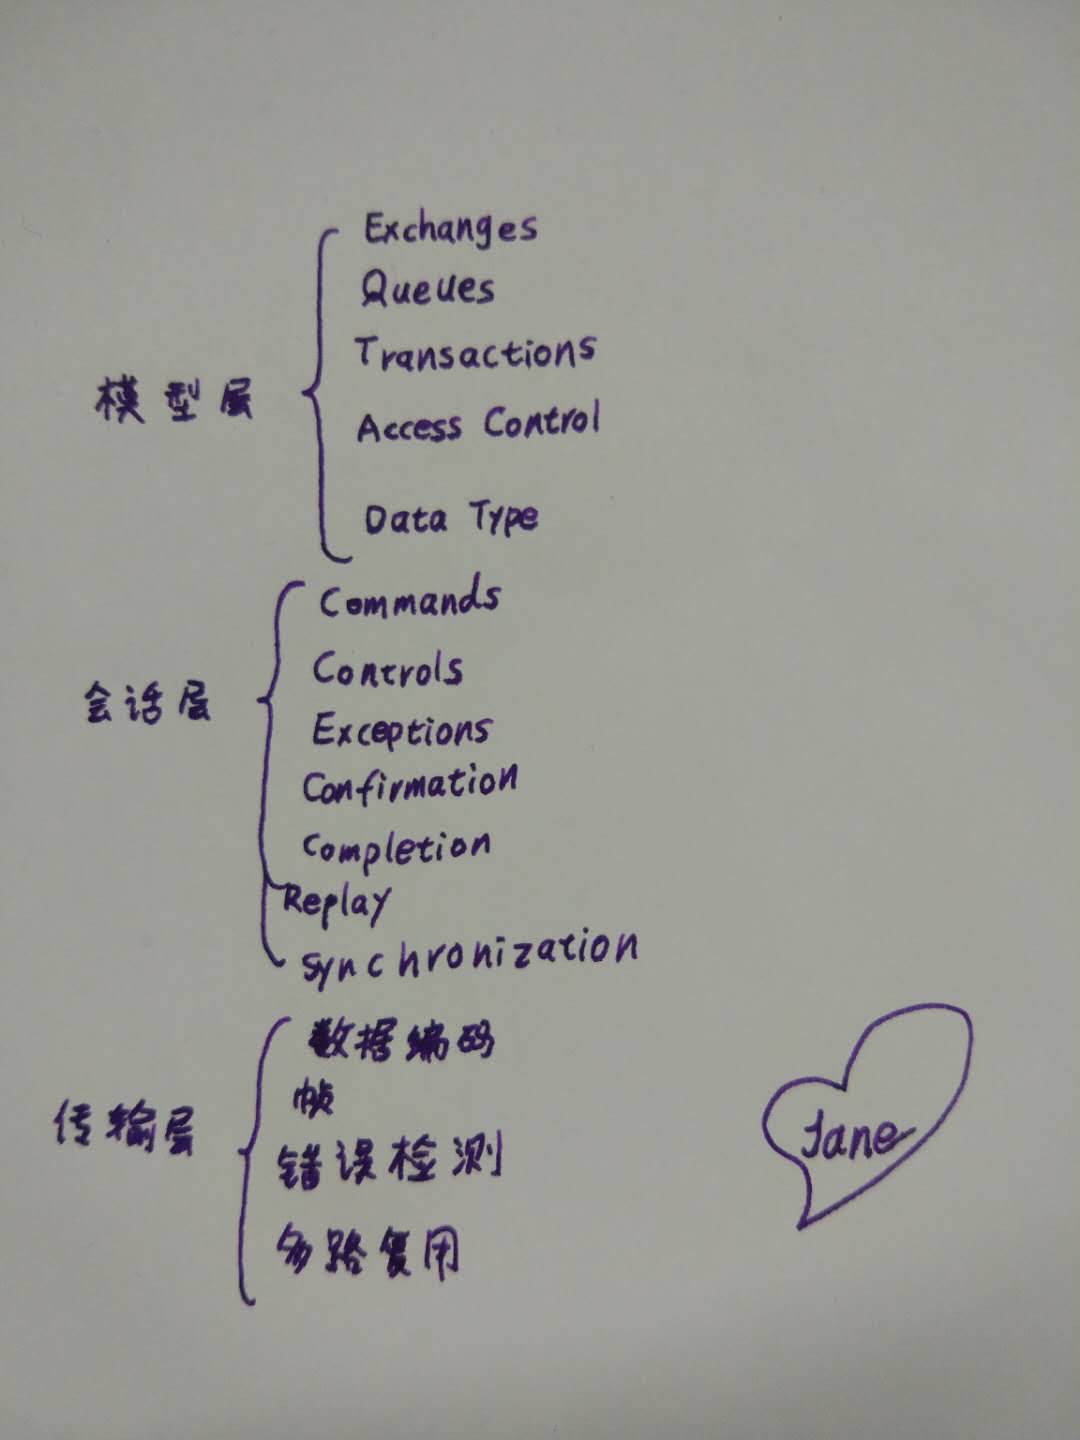 Exchanges
Queues
Transactions
模型层
Access Control
Data Type
Commands
Controls
会话层
Exceptions
Confirmation
Completion
Replay
Synchronization
数据编码
帧
传输层
错误检测
多路复用
Jane